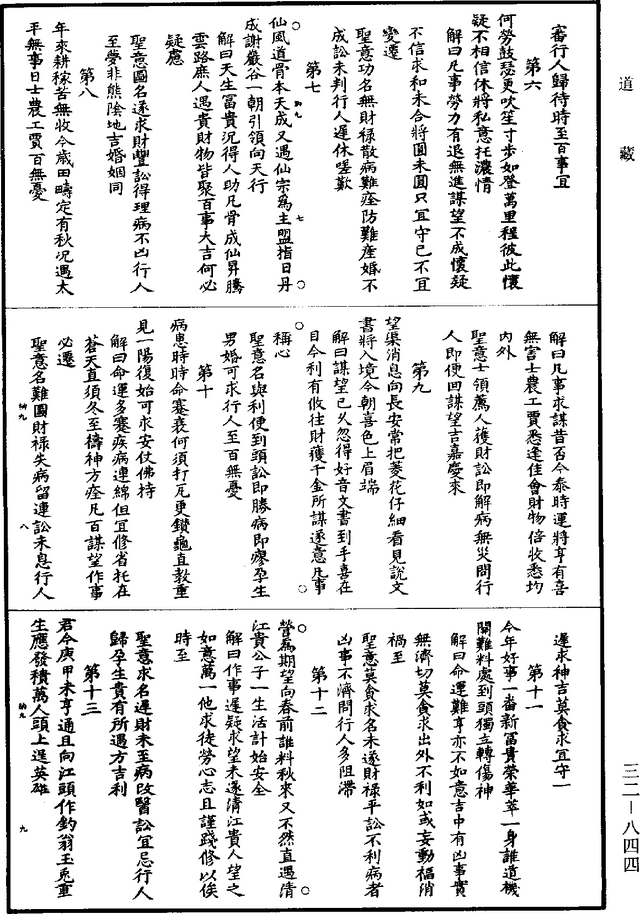 道藏
審行人歸待時至百事宜
第六
何勞鼓瑟更吹笙寸步如登萬里程彼此懷
疑不相信休將私意托濃情
解曰凡事勞力有退無進謀望不成懷疑
不信求和未合將圓未圓只宜守己不宜
變遷
聖意功名無財祿散病難痊防難產婚不
成訟未判行人遲休嗟歎
第七
仙風道骨本天成又遇仙宗為主盟指日丹
成謝巖谷一朝引領向天行
解曰天生富貴況得人助凡骨成仙昇騰
雲路庶人遇貴財物皆聚百事大吉何必
疑慮
聖意圖名遂求財豐訟得理病不凶行人
至夢非熊陰地吉婚姻同
第八
年來耕稼苦無收今歲田疇定有秋況遇太
平無事日士農工賈百無憂
解曰凡事求謀昔否今泰時運將亨有喜
無害士農工賈悉逢佳會財物倍收悉均
內外
聖意士領薦人獲財訟即解病無災問行
人即便回謀望吉嘉慶來
第九
望渠消息向長安常把菱花仔細看見說文
書將入境今朝喜色上眉端
解曰謀望已久忽得好音文書到手喜在
目今利有攸往財獲千金所謀遂意凡事
稱心
聖意名與利便到頭訟即勝病即瘳孕生
男婚可求行人至百無憂
第十
病患時時命蹇衰何須打瓦更鑽龜直教重
見一陽復始可求安仗佛持
解曰命運多蹇疾病連綿但宜修省托在
蒼天直須冬至禱神方痊凡百謀望作事
必遷
聖意名難圖財祿失病留連訟未息行人
遲求神吉莫貪求宜守一
第十一
今年好事一番新富貴榮華萃一身誰道機
關難料處到頭獨立轉傷神
解曰命運難亨亦不如意吉中有凶事實
無濟切莫貪求出外不利如或妄動福消
禍至
聖意莫貪求名未遂財祿平訟不利病者
凶事不濟問行人多阻滯
第十二
營為期望向春前誰料秋來又不然直遇清
江貴公子一生活計始安全
解曰作事遲疑求望未遂清江貴人望之
如意萬一他求徒勞心志且謹踐修以俟
時至
聖意求名遲財未至病改醫訟宜忌行人
歸孕生貴有所遇方吉利
第十三
君今庚甲未亨通且向江頭作釣翁玉兔重
生應發積萬人頭上逞英雄
三二－八四四